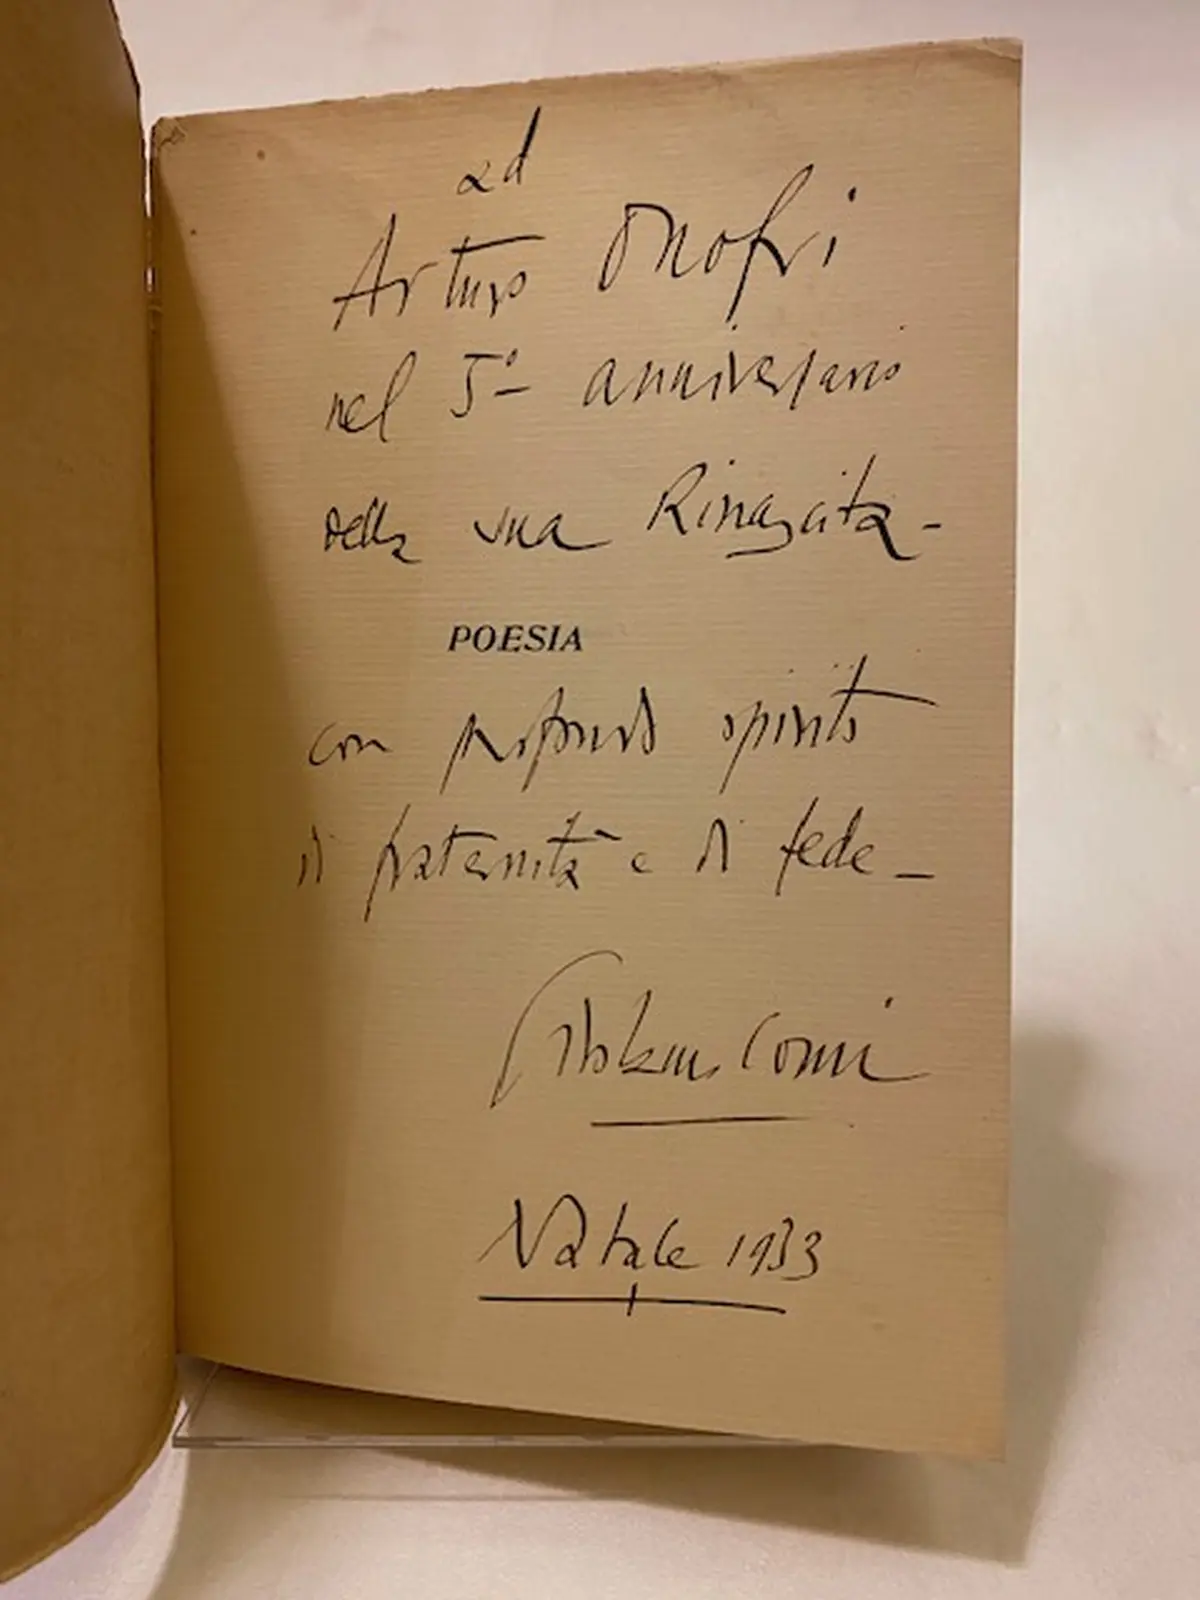 ad
Arturo Onofri
nel 5º anniversario
della sua Rinascita -
POESIA
con profondo spirito
di fraternità e di fede -
Girolamo Comi
Natale 1933